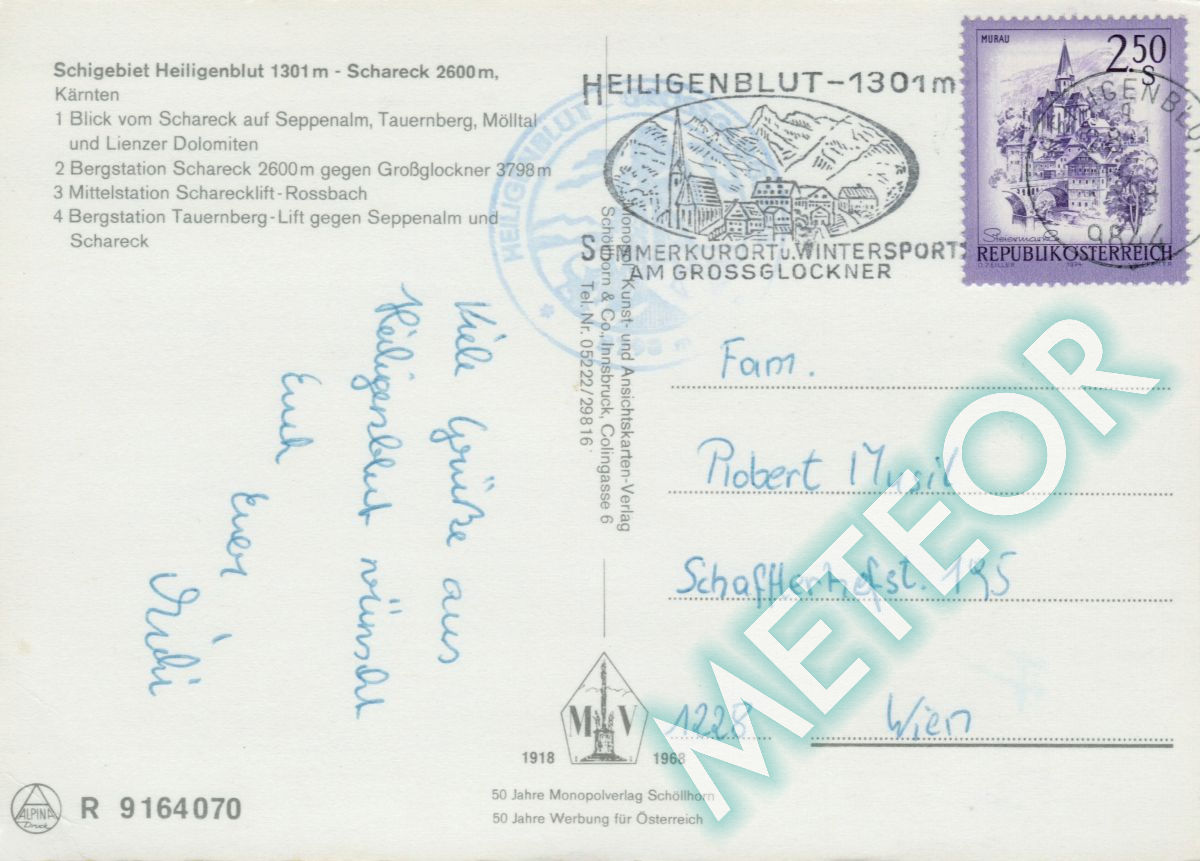 Schigebiet Heiligenblut 1301 m - Schareck 2600 m,
Kärnten
1 Blick vom Schareck auf Seppenalm, Tauernberg, Mölltal
und Lienzer Dolomiten
2 Bergstation Schareck 2600 m gegen Großglockner 3798 m
3 Mittelstation Scharecklift-Rossbach
4 Bergstation Tauernberg-Lift gegen Seppenalm und
Schareck
HEILIGENBLUT-1301m
SOMMERKURORT u. WINTERSPORT
AM GROSSGLOCKNER
HEILIGENBLUT
MURAU
2.50
S
Steiermark
REPUBLIK ÖSTERREICH
1974
9844
Viele Grüße aus
Heiligenblut wünscht
Euch
Euer
Michi
Monopol Kunst- und Ansichtskarten-Verlag
Schöllhorn & Co., Innsbruck, Colingasse 6
Tel. Nr. 05222/29816
Fam.
Robert Musil
195
1228 Wien
METEOR
M V
1918 1968
50 Jahre Monopolverlag Schöllhorn
50 Jahre Werbung für Österreich
ALPINA
Druck
R 9164070